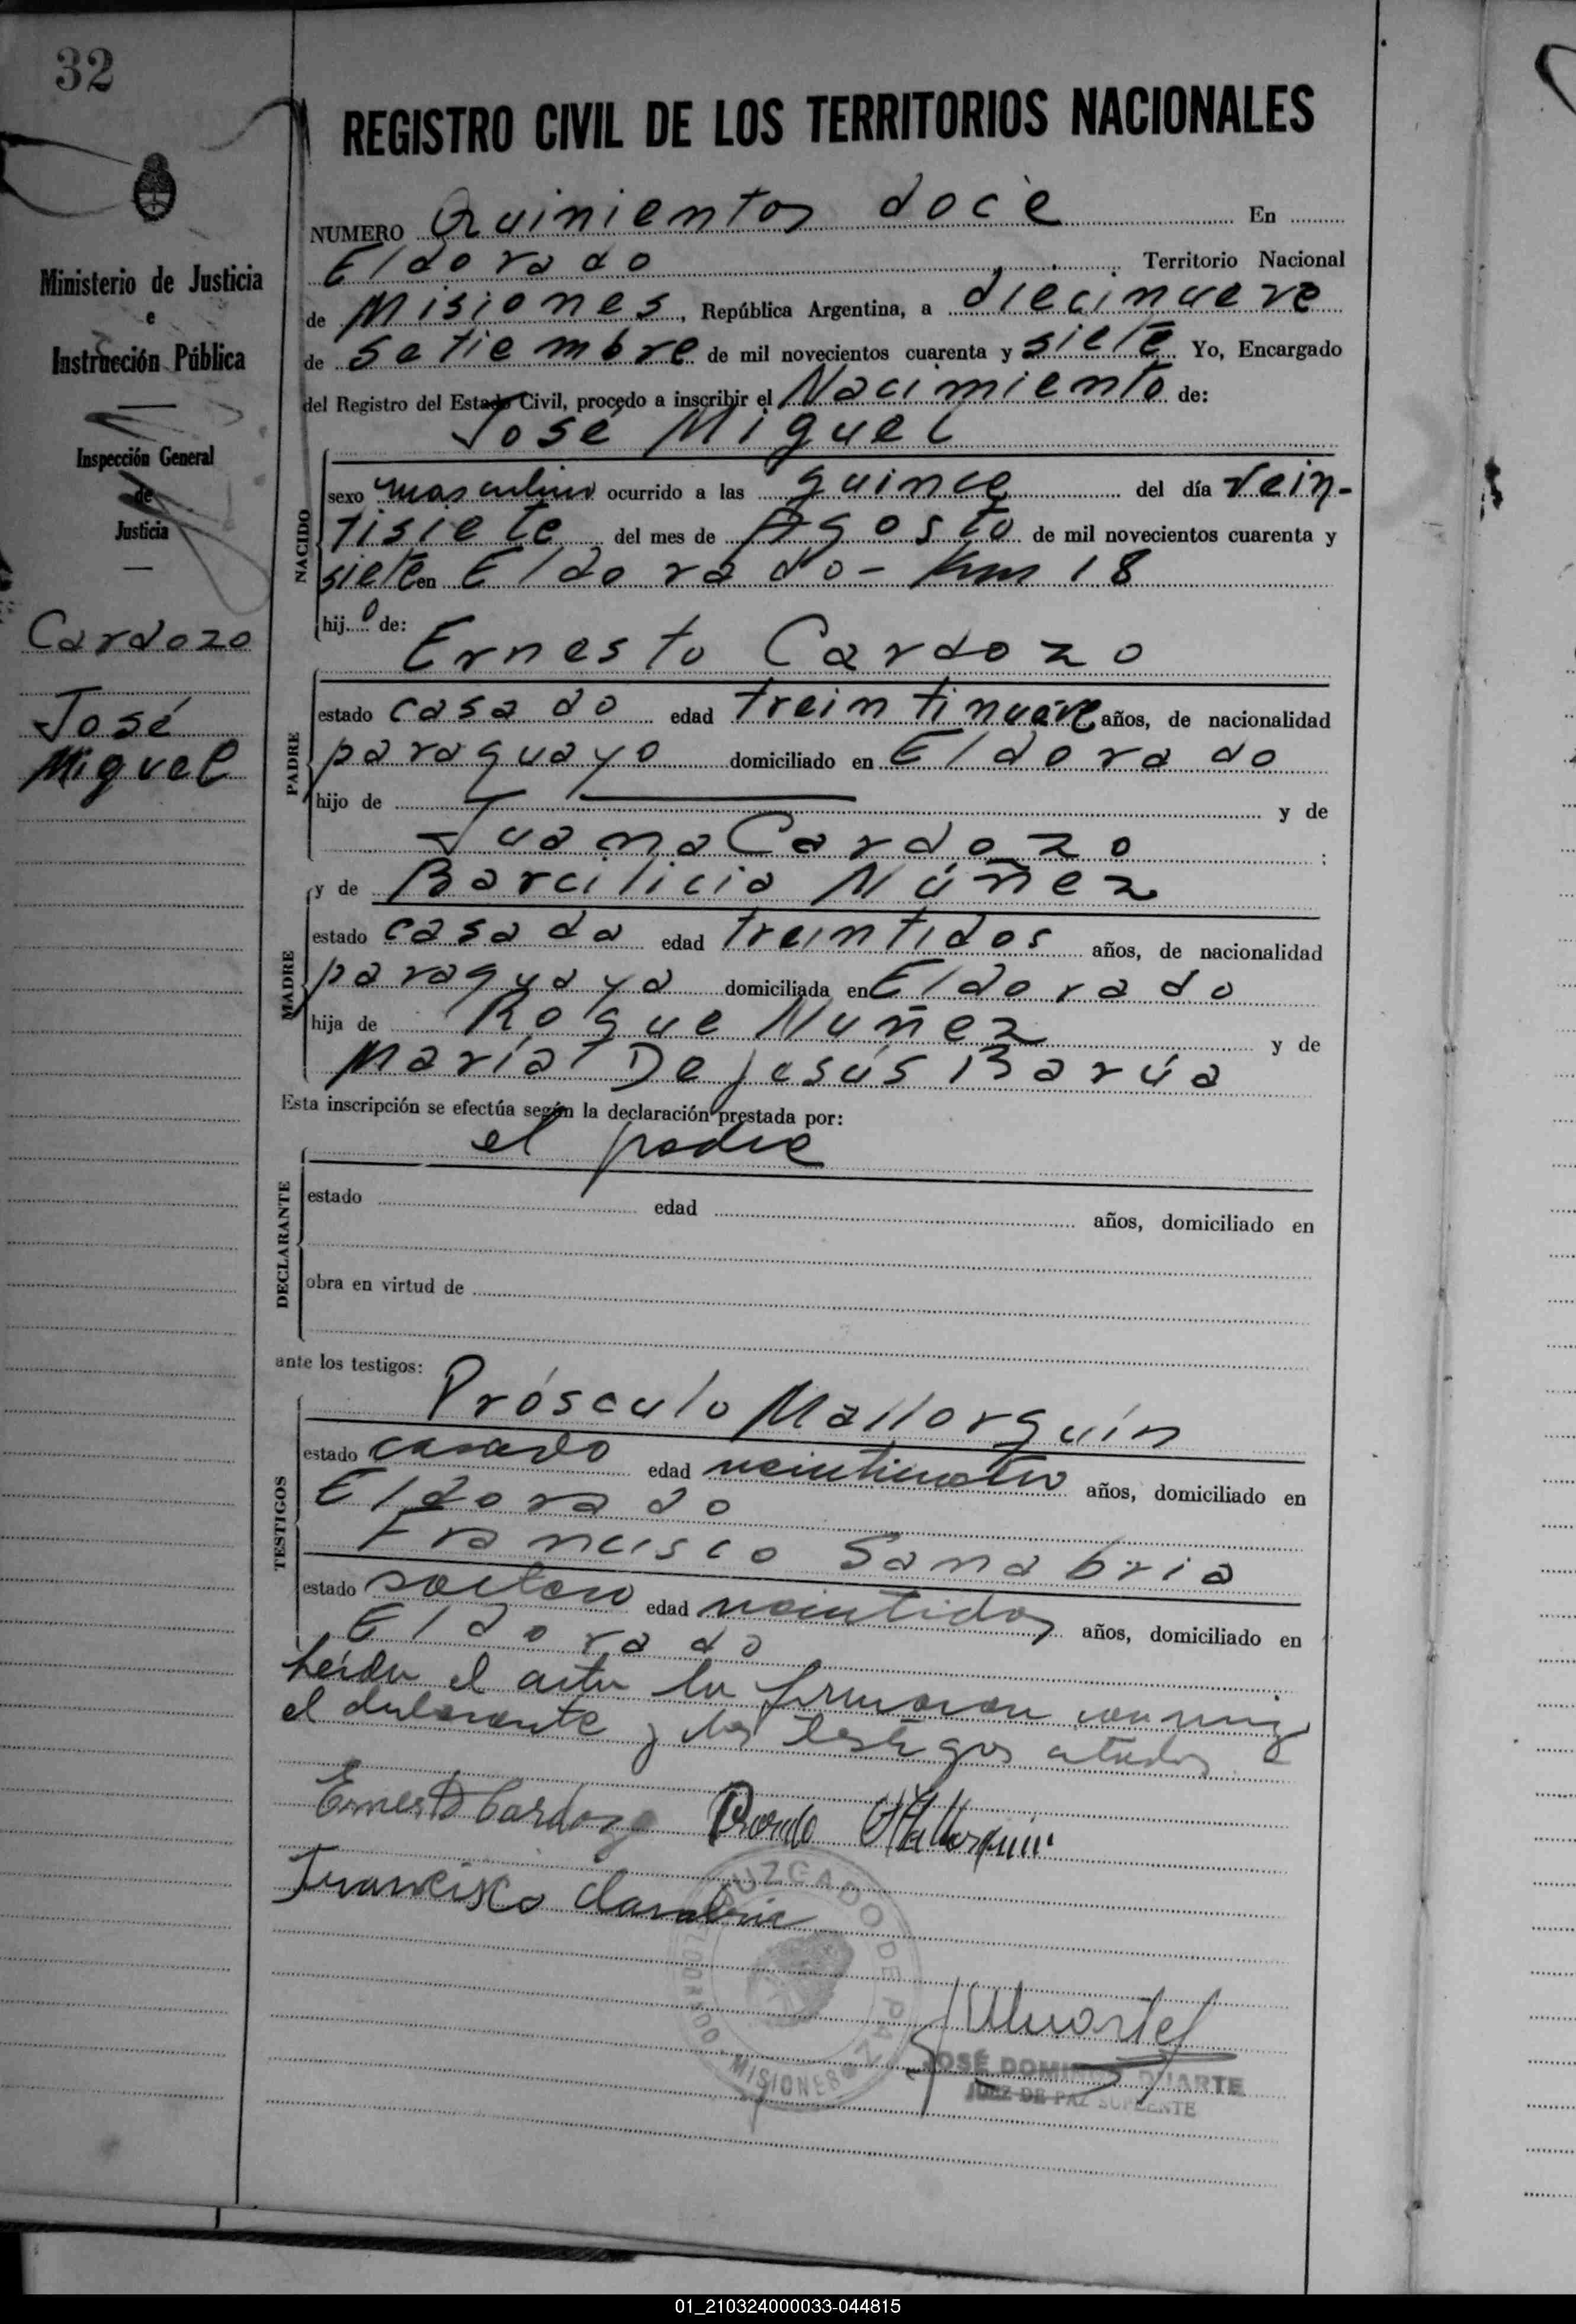 32
REGISTRO CIVIL DE LOS TERRITORIOS NACIONALES
Ministerio de Justicia
e
Instrucción Pública
Inspección General
de
Justicia
Cardozo
José
Miguel
NUMERO Quinientos doce En
Eldorado Territorio Nacional
de Misiones, República Argentina, a diecinueve
de setiembre de mil novecientos cuarenta y siete Yo, Encargado
del Registro del Estado Civil, procedo a inscribir el Nacimiento de:
José Miguel
NACIDO
sexo masculino ocurrido a las quince del día vein-
tisiete del mes de Agosto de mil novecientos cuarenta y
siete en Eldorado - Km 18
hijo de:
Ernesto Cardozo
PADRE
estado casado edad treintinueve años, de nacionalidad
paraguayo domiciliado en Eldorado
hijo de y de
Juana Cardozo ;
y de Barcilicia Núñez
MADRE
estado casada edad treintidos años, de nacionalidad
paraguaya domiciliada en Eldorado
hija de Roque Nuñez y de
María De Jesús Barúa
Esta inscripción se efectúa según la declaración prestada por:
el padre
DECLARANTE
estado edad años, domiciliado en
obra en virtud de
ante los testigos:
Prósculo Mallorquín
TESTIGOS
estado casado edad veinticuatro años, domiciliado en
Eldorado
Francisco Sanabria
estado soltero edad veintidos años, domiciliado en
Eldorado
Leída el acta la firmaron conmigo
el declarante y los testigos citados
Ernesto Cardozo Mallorquin
Francisco Sanabria
JUZGADO DE PAZ
ELDORADO - MISIONES
JOSÉ DOMINGO DUARTE
JUEZ DE PAZ SUPLENTE
01_210324000033-044815